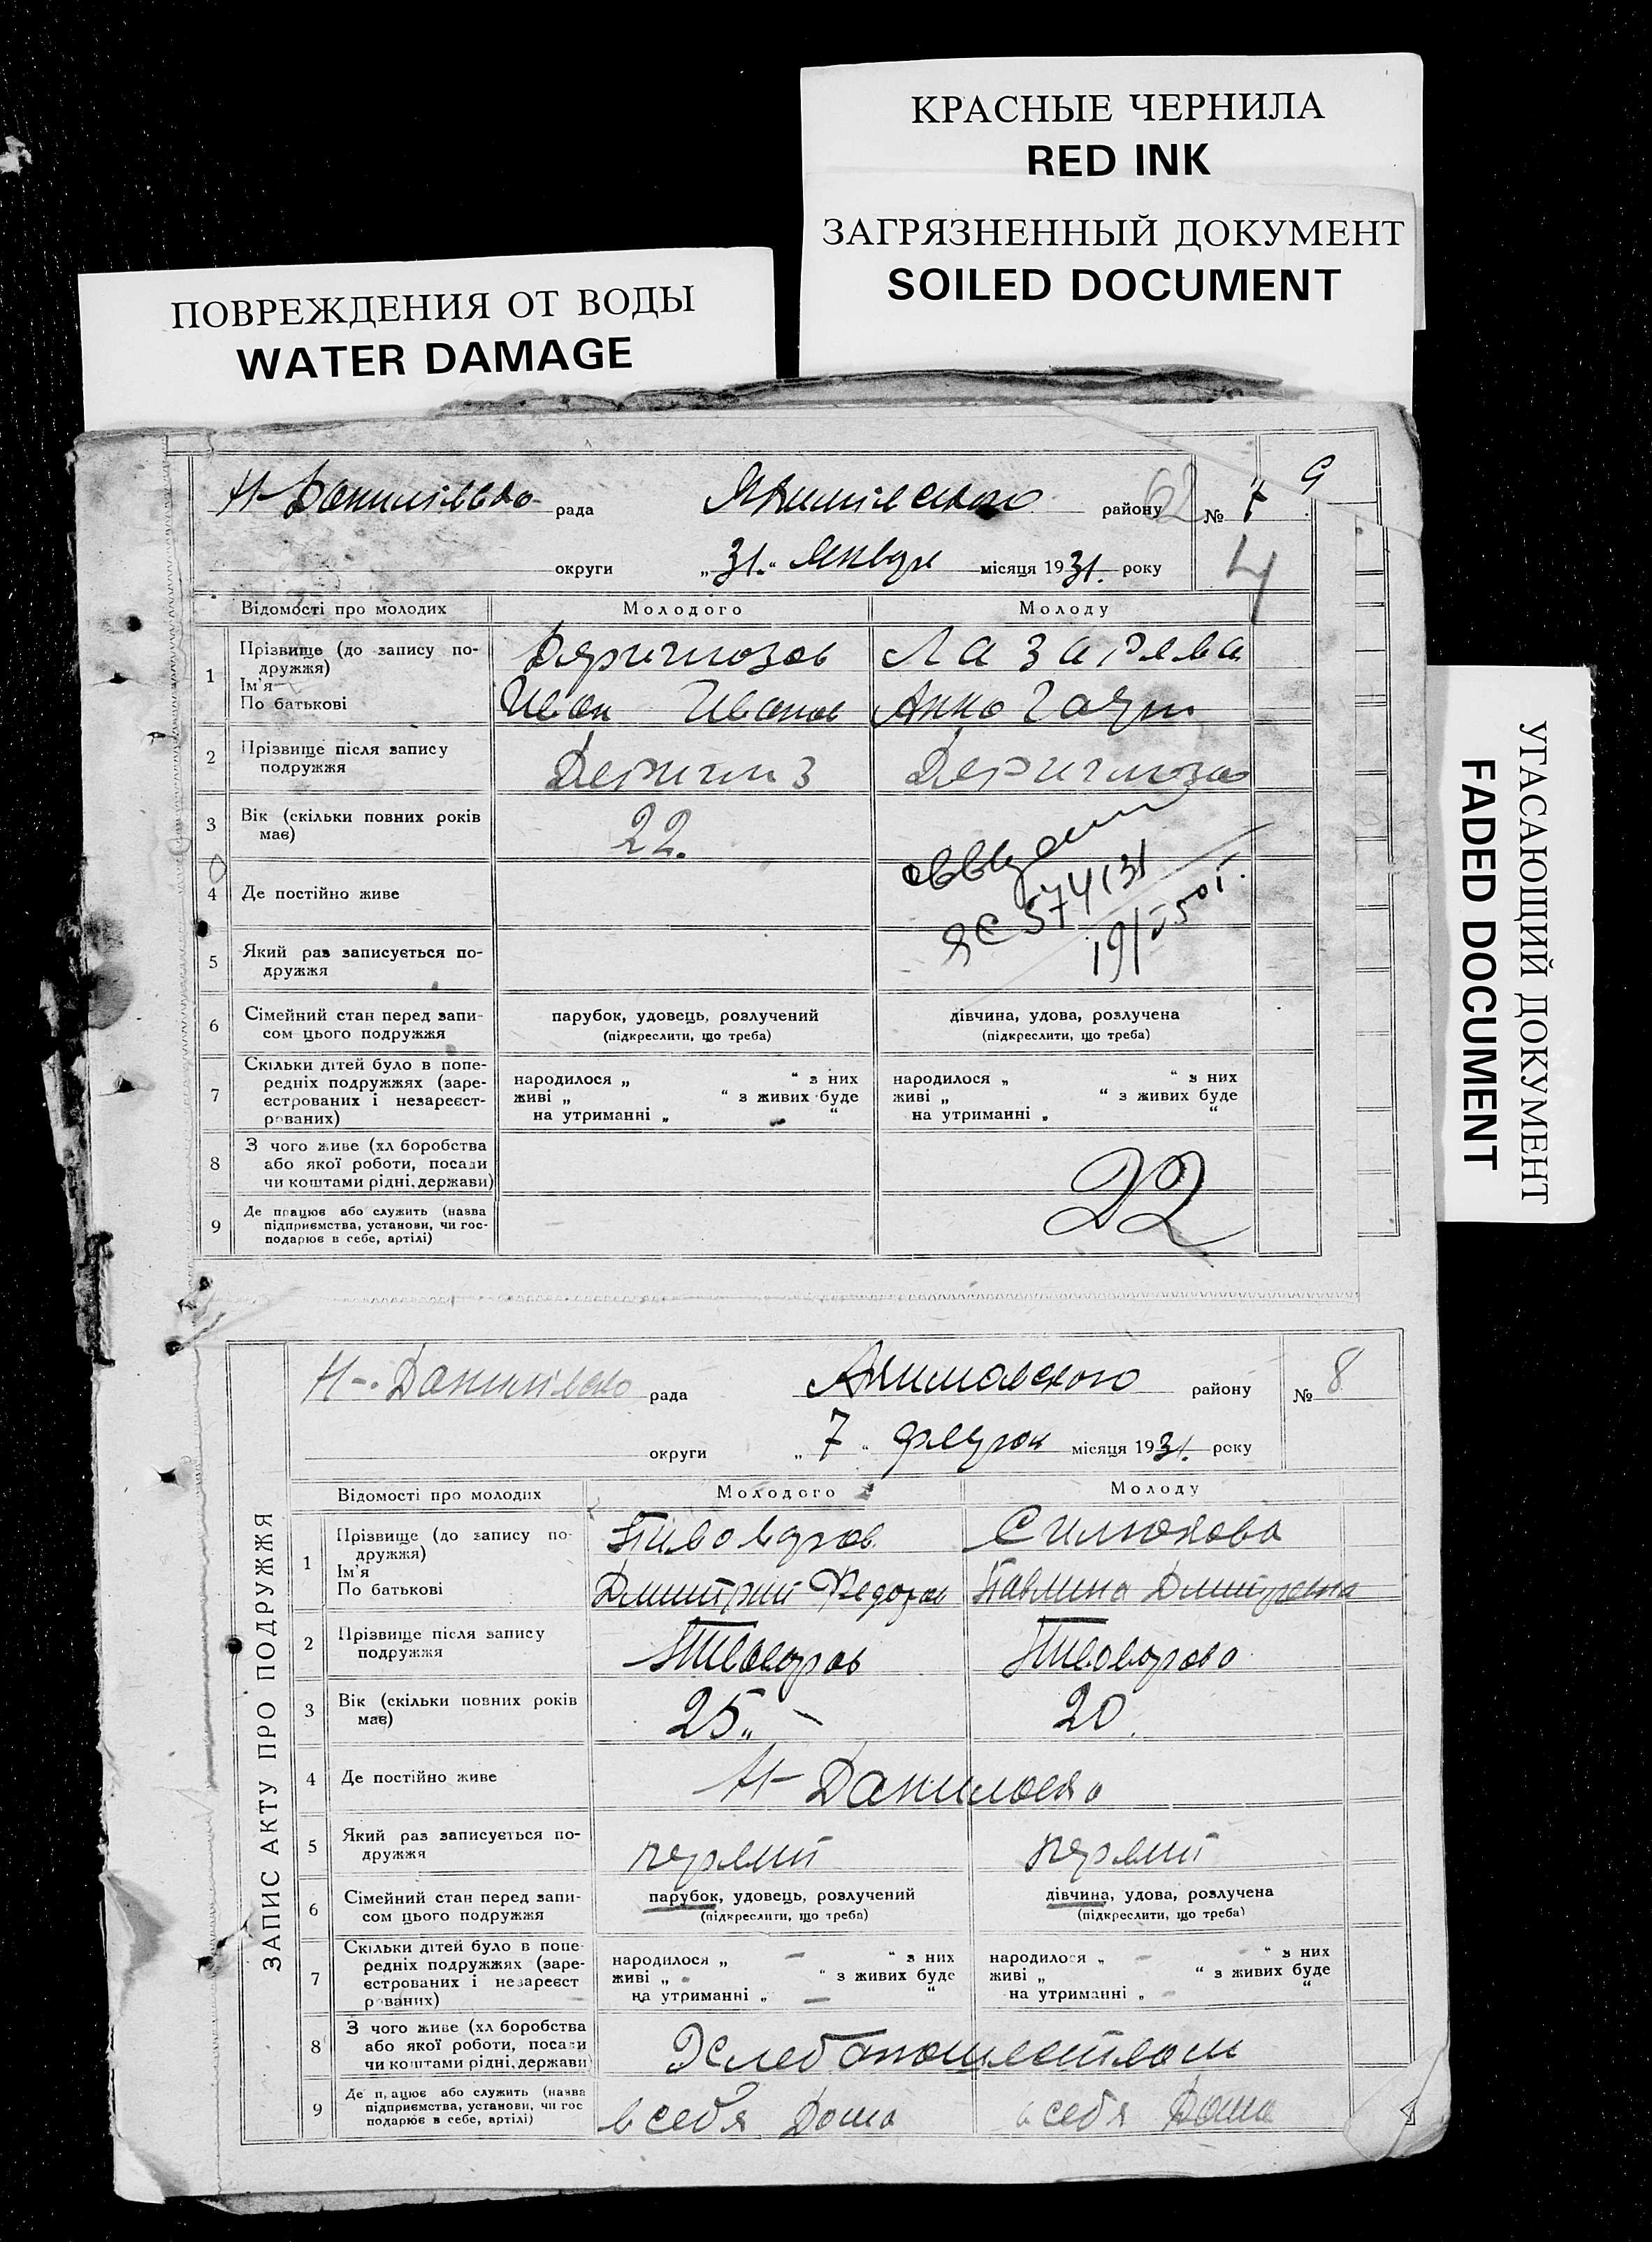 КРАСНЫЕ ЧЕРНИЛА
RED INK
ЗАГРЯЗНЕННЫЙ ДОКУМЕНТ
SOILED DOCUMENT
ПОВРЕЖДЕНИЯ ОТ ВОДЫ
WATER DAMAGE
УГАСАЮЩИЙ ДОКУМЕНТ
FADED DOCUMENT
9
Н-Данилівка рада району 62 № 7
округи „31.“ Января місяця 1931. року 4
Відомості про молодих Молодого Молоду
1 Прізвище (до запису подружжя) Лазарева
Ім'я
По батькові Иван Иванов Анна
2 Прізвище після запису
подружжя
3 Вік (скільки повних років
має) 22.
4 Де постійно живе
5 Який раз записується по-
дружжя
6 Сімейний стан перед запи-
сом цього подружжя
парубок, удовець, розлучений
(підкреслити, що треба)
дівчина, удова, розлучена
(підкреслити, що треба)
7 Скільки дітей було в попе-
редніх подружжях (заре-
єстрованих і незареєст-
рованих)
народилося „ “ з них
живі „ “ з живих буде
на утриманні „ “
народилося „ “ з них
живі „ “ з живих буде
на утриманні „ “
8 З чого живе (хліборобства
або якої роботи, посади
чи коштами рідні, держави)
9 Де працює або служить (назва
підприємства, установи, чи гос-
подарює в себе, артілі)
22
ЗАПИС АКТУ ПРО ПОДРУЖЖЯ
Н-Данилівка рада Акимовского району № 8
округи „ 7 “ місяця 1931. року
Відомості про молодих Молодого Молоду
1 Прізвище (до запису по-
дружжя) Пивоваров Силюкова
Ім'я
По батькові Дмитрий Федоров Павлина Дмитревна
2 Прізвище після запису
подружжя Пивоваров Пивоварова
3 Вік (скільки повних років
має) 25 20.
4 Де постійно живе Н-Даниловка
5 Який раз записується по-
дружжя первий первий
6 Сімейний стан перед запи-
сом цього подружжя
парубок, удовець, розлучений
(підкреслити, що треба)
дівчина, удова, розлучена
(підкреслити, що треба)
7 Скільки дітей було в попе-
редніх подружжях (заре-
єстрованих і незареєст
рованих)
народилося „ — “ з них
живі „ “ з живих буде
на утриманні „ — “
народилося „ — “ з них
живі „ “ з живих буде
на утриманні „ - “
8 З чого живе (хліборобства
або якої роботи, посади
чи коштами рідні, держави)
Хлебопашеством
9 Де працює або служить (назва
підприємства, установи, чи гос
подарює в себе, артілі)
в себя Дома в себя Дома